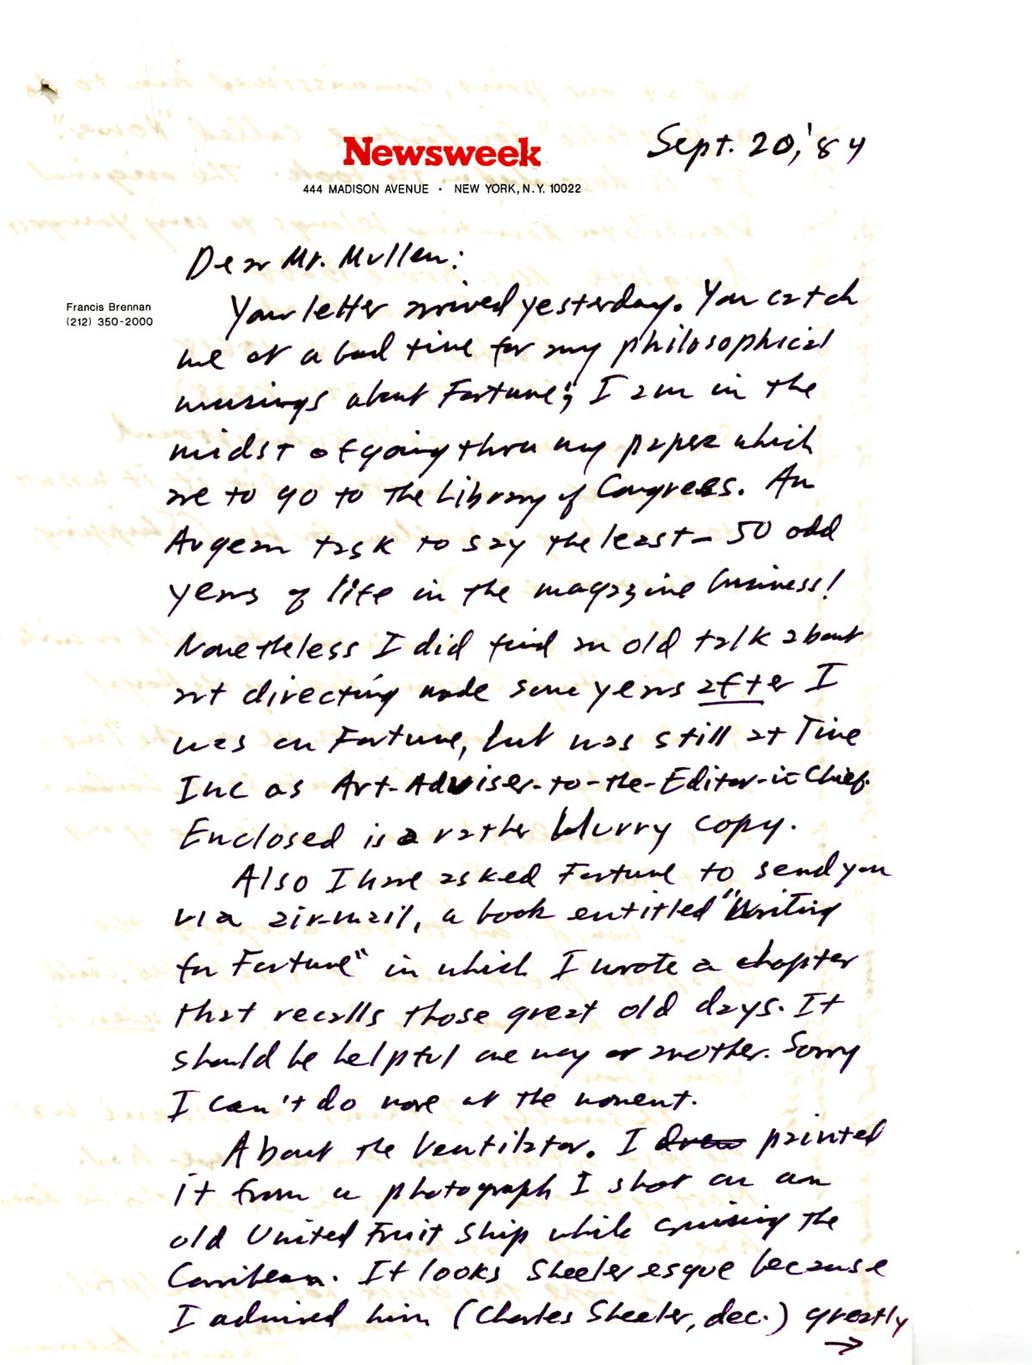 Newsweek
444 MADISON AVENUE · NEW YORK, N.Y. 10022
Sept. 20, '84
Francis Brennan
(212) 350-2000
Dear Mr. Mullen:
Your letter arrived yesterday. You catch
me at a bad time for my philosophical
musings about Fortune; I am in the
midst of going thru my papers which
are to go to the Library of Congress. An
Augean task to say the least — 50 odd
years of life in the magazine business!
Nonetheless I did find an old talk about
art directing made some years after I
was on Fortune, but was still at Time
Inc as Art-Adviser-to-the-Editor-in Chief.
Enclosed is a rather blurry copy.
Also I have asked Fortune to send you
via air-mail, a book entitled "Writing
for Fortune" in which I wrote a chapter
that recalls those great old days. It
should be helpful one way or another. Sorry
I can't do more at the moment.
About the Ventilator. I drew painted
it from a photograph I shot on an
old United Fruit Ship while cruising the
Carribean. It looks Sheeleresque because
I admired him (Charles Sheeler, dec.) greatly
→